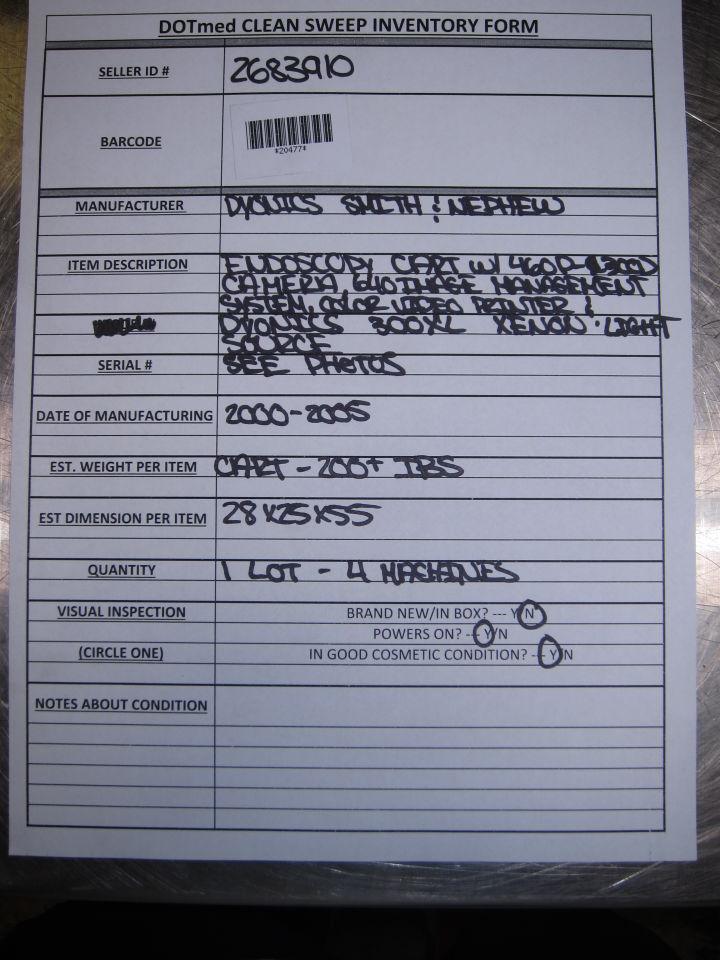 DOTmed CLEAN SWEEP INVENTORY FORM
SELLER ID # 2683910
BARCODE
*20477*
MANUFACTURER DYONICS SMITH & NEPHEW
ITEM DESCRIPTION ENDOSCOPY CART W/ 460P
CAMERA, 640 IMAGE MANAGEMENT
SYSTEM, COLOR VIDEO PRINTER &
DYONICS 300XL XENON LIGHT
SOURCE
SERIAL # SEE PHOTOS
DATE OF MANUFACTURING 2000-2005
EST. WEIGHT PER ITEM CART - 200+ IBS
EST DIMENSION PER ITEM 28X25X55
QUANTITY 1 LOT - 4 MACHINES
VISUAL INSPECTION BRAND NEW/IN BOX? --- Y/N
POWERS ON? --- Y/N
(CIRCLE ONE) IN GOOD COSMETIC CONDITION? --- Y/N
NOTES ABOUT CONDITION